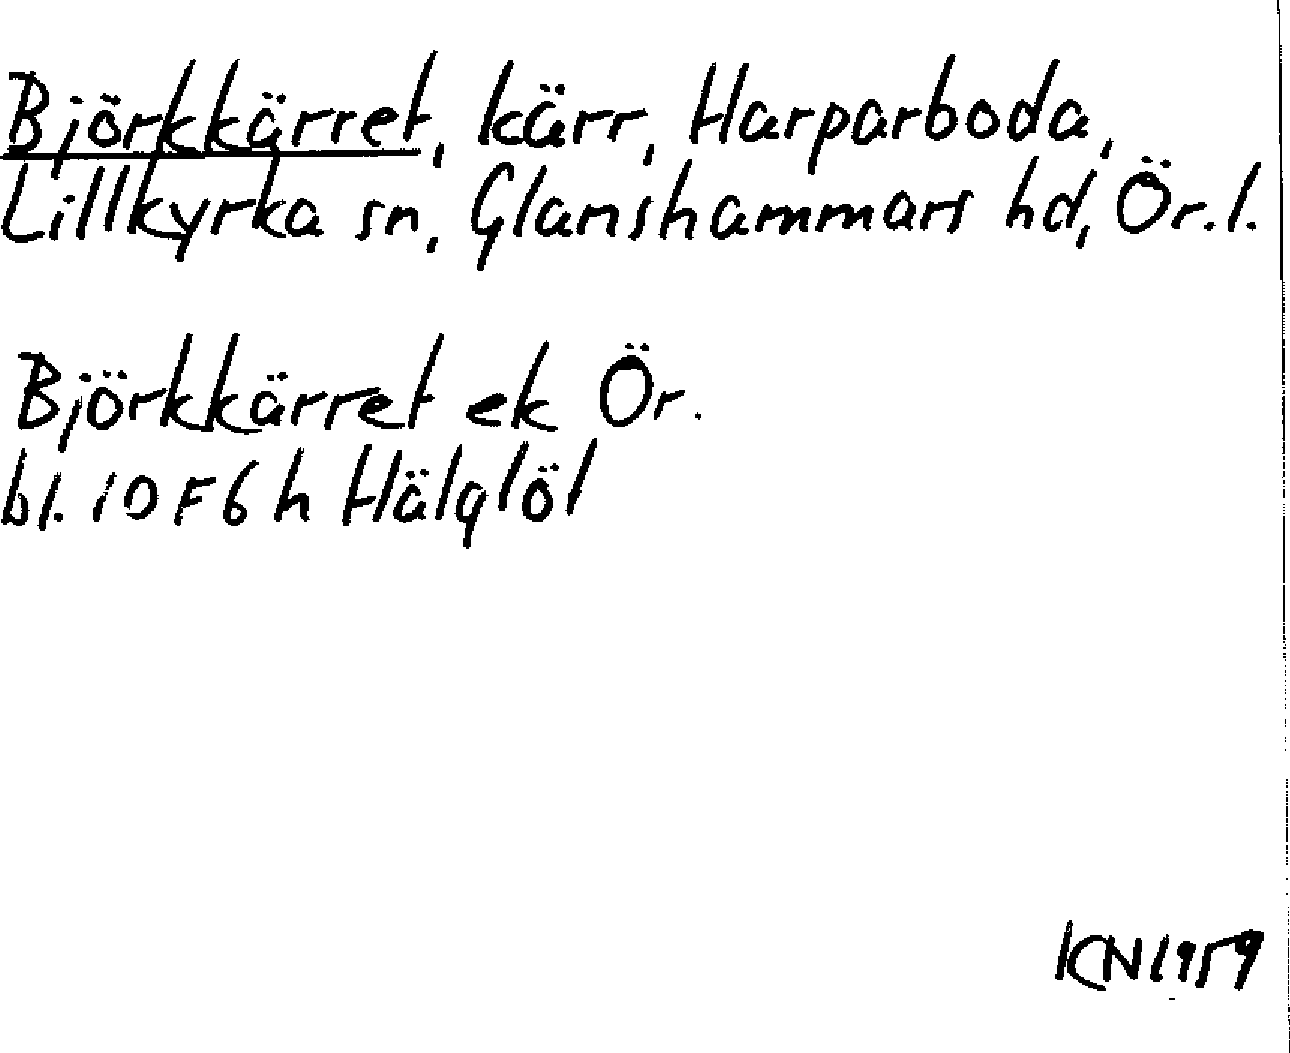 Björkkärret, kärr, Harparboda,
Lillkyrka sn, Glanshammars hd, Ör. l.
Björkkärret ek Ör.
bl. 10F6h Hälglöl
KN 1959